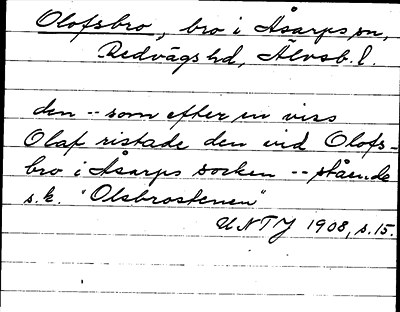 Olofsbro, bro i Åsarps sn,
Redvägs hd, Älvsb. l.
den -- som efter en viss
Olaf ristade den vid Olofs-
bro i Åsarps socken -- stående
s.k. "Olsbrostenen"
UNTJ 1908, s. 15.